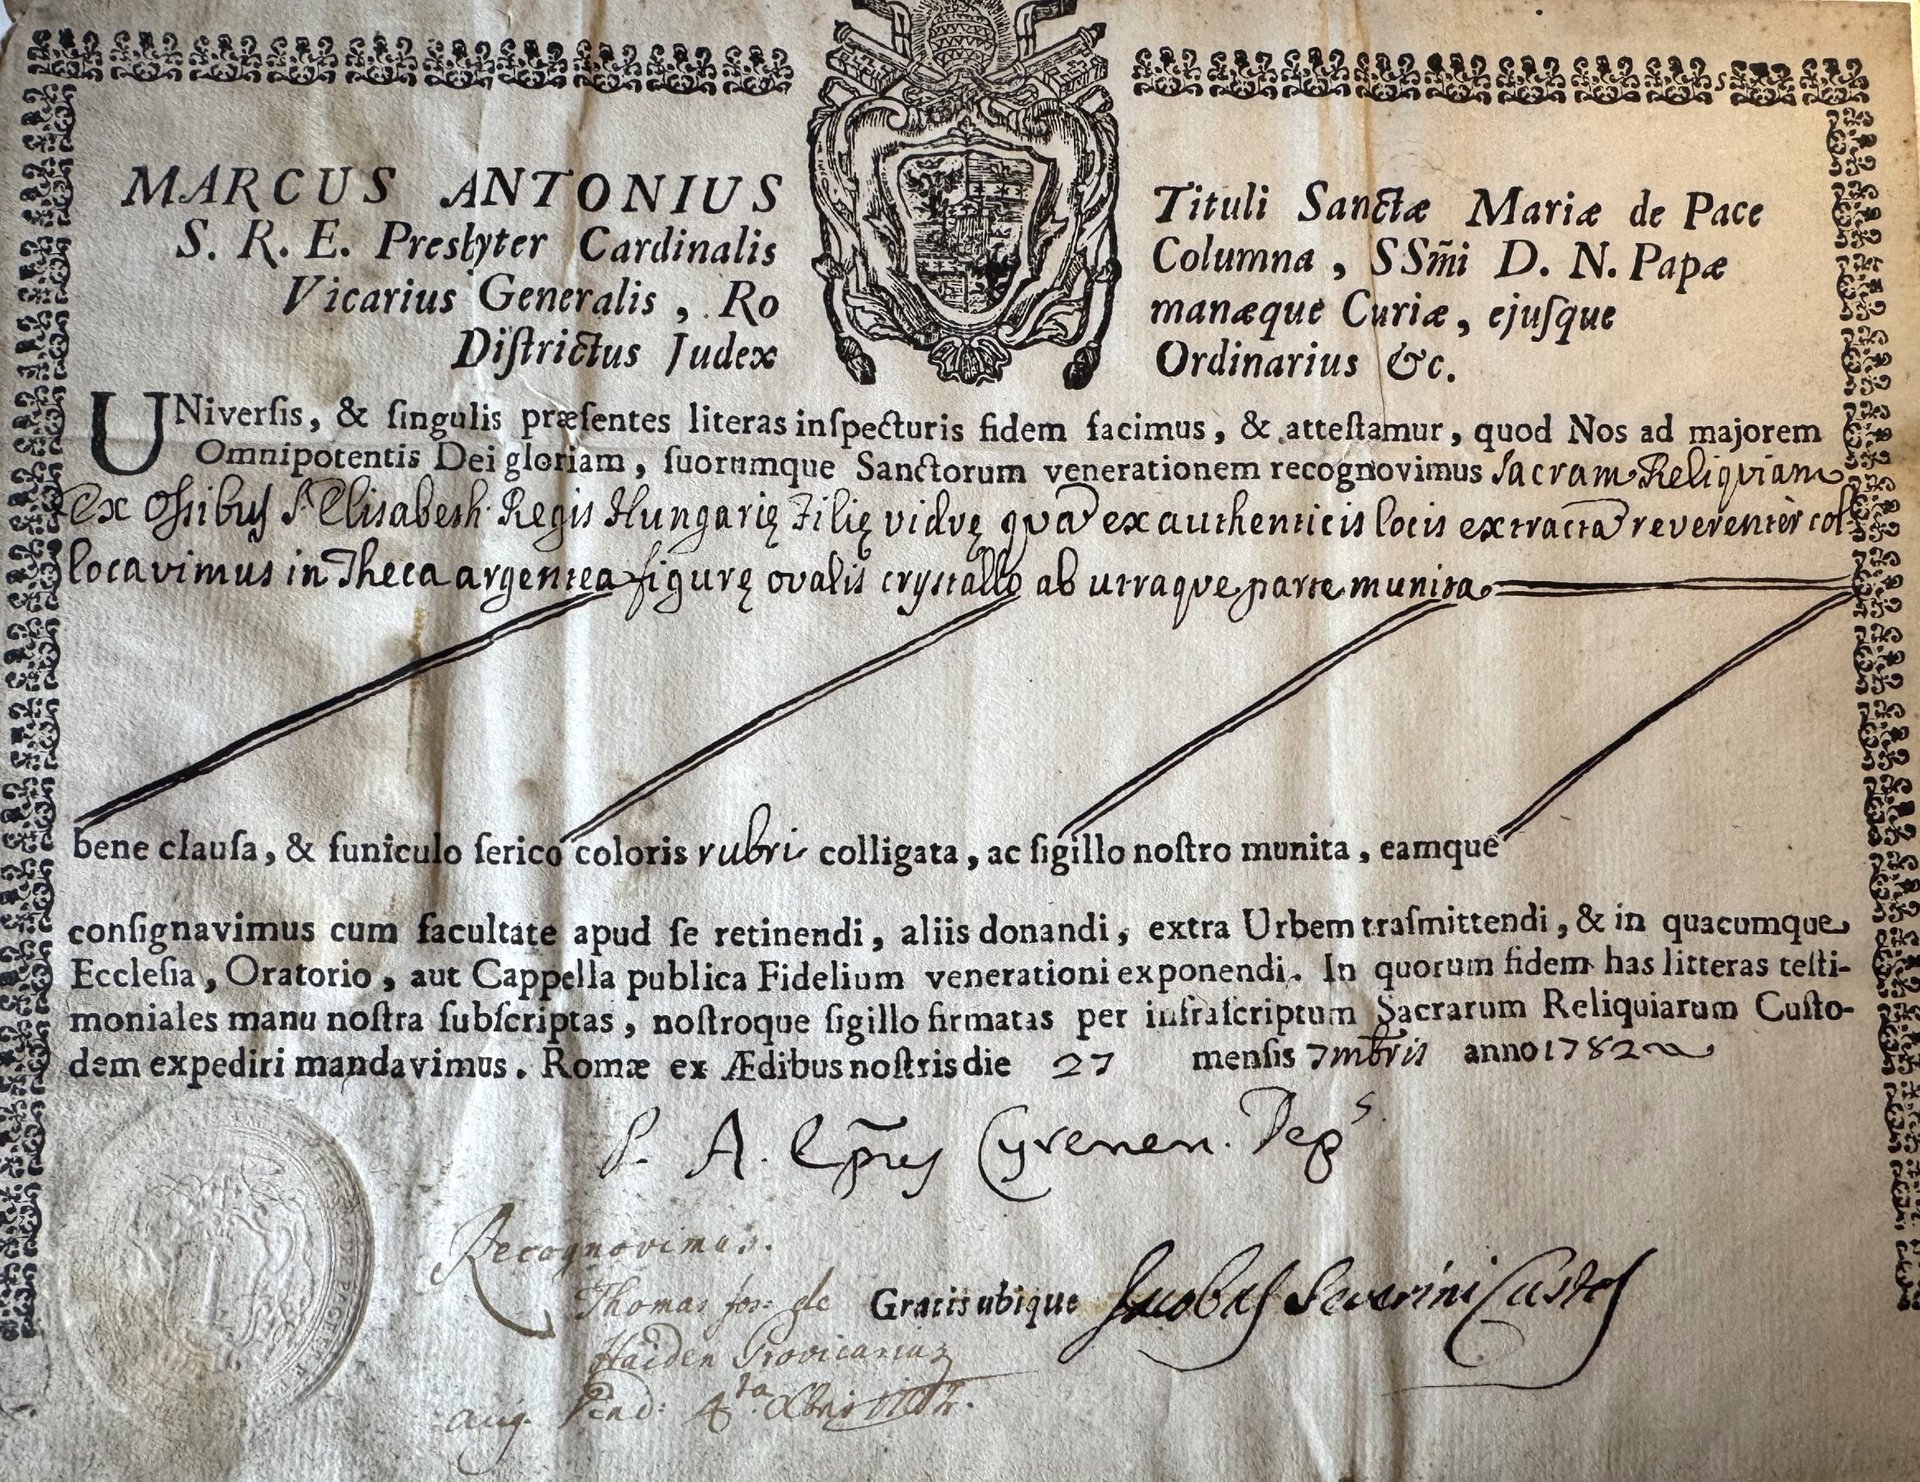 MARCUS ANTONIUS Tituli Sanctæ Mariæ de Pace
S. R. E. Presbyter Cardinalis Columna, SSm̃i D. N. Papæ
Vicarius Generalis, Ro manæque Curiæ, ejuſque
Diſtrictus Judex Ordinarius &c.
UNiverſis, & ſingulis præſentes literas inſpecturis fidem facimus, & atteſtamur, quod Nos ad majorem
Omnipotentis Dei gloriam, ſuorumque Sanctorum venerationem recognovimus sacram Reliquiam
ex Ossibus S. Elisabeth Regis Hungarię Filię vidvę quā ex authenticis locis extractā reverenter col-
locavimus in Theca argentea figurę ovalis crystallo ab utraque parte munita
bene clauſa, & funiculo ſerico coloris rubri colligata, ac ſigillo noſtro munita, eamque
conſignavimus cum facultate apud ſe retinendi, aliis donandi, extra Urbem traſmittendi, & in quacumque
Eccleſia, Oratorio, aut Cappella publica Fidelium venerationi exponendi. In quorum fidem has litteras teſti-
moniales manu noſtra ſubſcriptas, noſtroque ſigillo firmatas per infraſcriptum Sacrarum Reliquiarum Cuſto-
dem expediri mandavimus. Romæ ex Ædibus noſtris die 27 mensis 7mbris anno 1782
A. Ep̃us Cyrenen. Dep.s
Recognovimus.
Thomas Jos: de
Haiden Provicarius
Aug. Vind: 4ta Xbris
Gratis ubique Jacobus Severini Custos